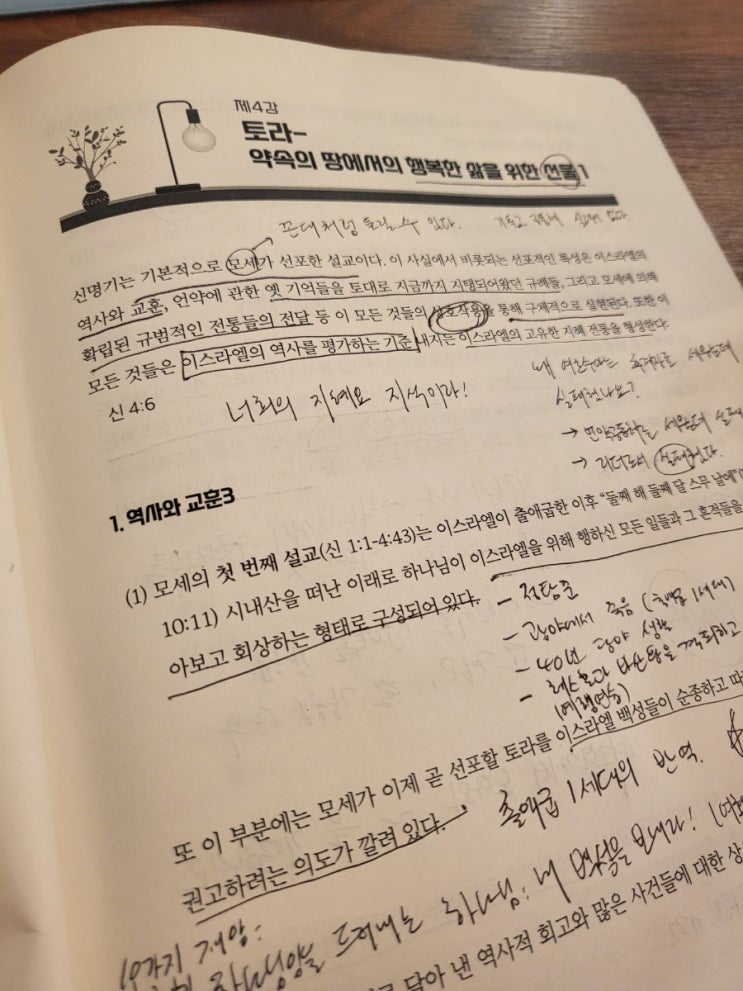 제4강
토라-
약속의 땅에서의 행복한 삶을 위한 선물1
꼰대처럼 들릴 수 있다.
신명기는 기본적으로 모세가 선포한 설교이다. 이 사실에서 비롯되는 선포적인 특성은 이스라엘의
역사와 교훈, 언약에 관한 옛 기억들을 토대로 지금까지 지탱되어왔던 규례들, 그리고 모세에 의해
확립된 규범적인 전통들의 전달 등 이 모든 것들의 상호작용을 통해 구체적으로 실현된다. 또한 이
모든 것들은 이스라엘의 역사를 평가하는 기준 내지는 이스라엘의 고유한 지혜 전통을 형성한다.
신 4:6
너희의 지혜요 지식이라!
왜 여호수아는 후계자를 세우는데
실패했나요?
→ 언약공동체는 세웠는데
→ 리더로서 실패했다.
1. 역사와 교훈3
(1) 모세의 첫 번째 설교(신 1:1-4:43)는 이스라엘이 출애굽한 이후 "둘째 해 둘째 달 스무 날에"
10:11) 시내산을 떠난 이래로 하나님이 이스라엘을 위해 행하신 모든 일들과 그 흔적들을
아보고 회상하는 형태로 구성되어 있다.
- 정탐꾼
- 광야에서 죽음 (출애굽 1세대)
- 40년 광야 생활
- 헤스본과 바산 왕을 격퇴하고
(예행연습)
또 이 부분에는 모세가 이제 곧 선포할 토라를 이스라엘 백성들이 순종하고 따
권고하려는 의도가 깔려 있다.
출애굽 1세대의 반역.
10가지 재앙:
드러내는 하나님: 내 백성을 보내라!
닮아 낸 역사적 회고와 많은 사건들에 대한 상